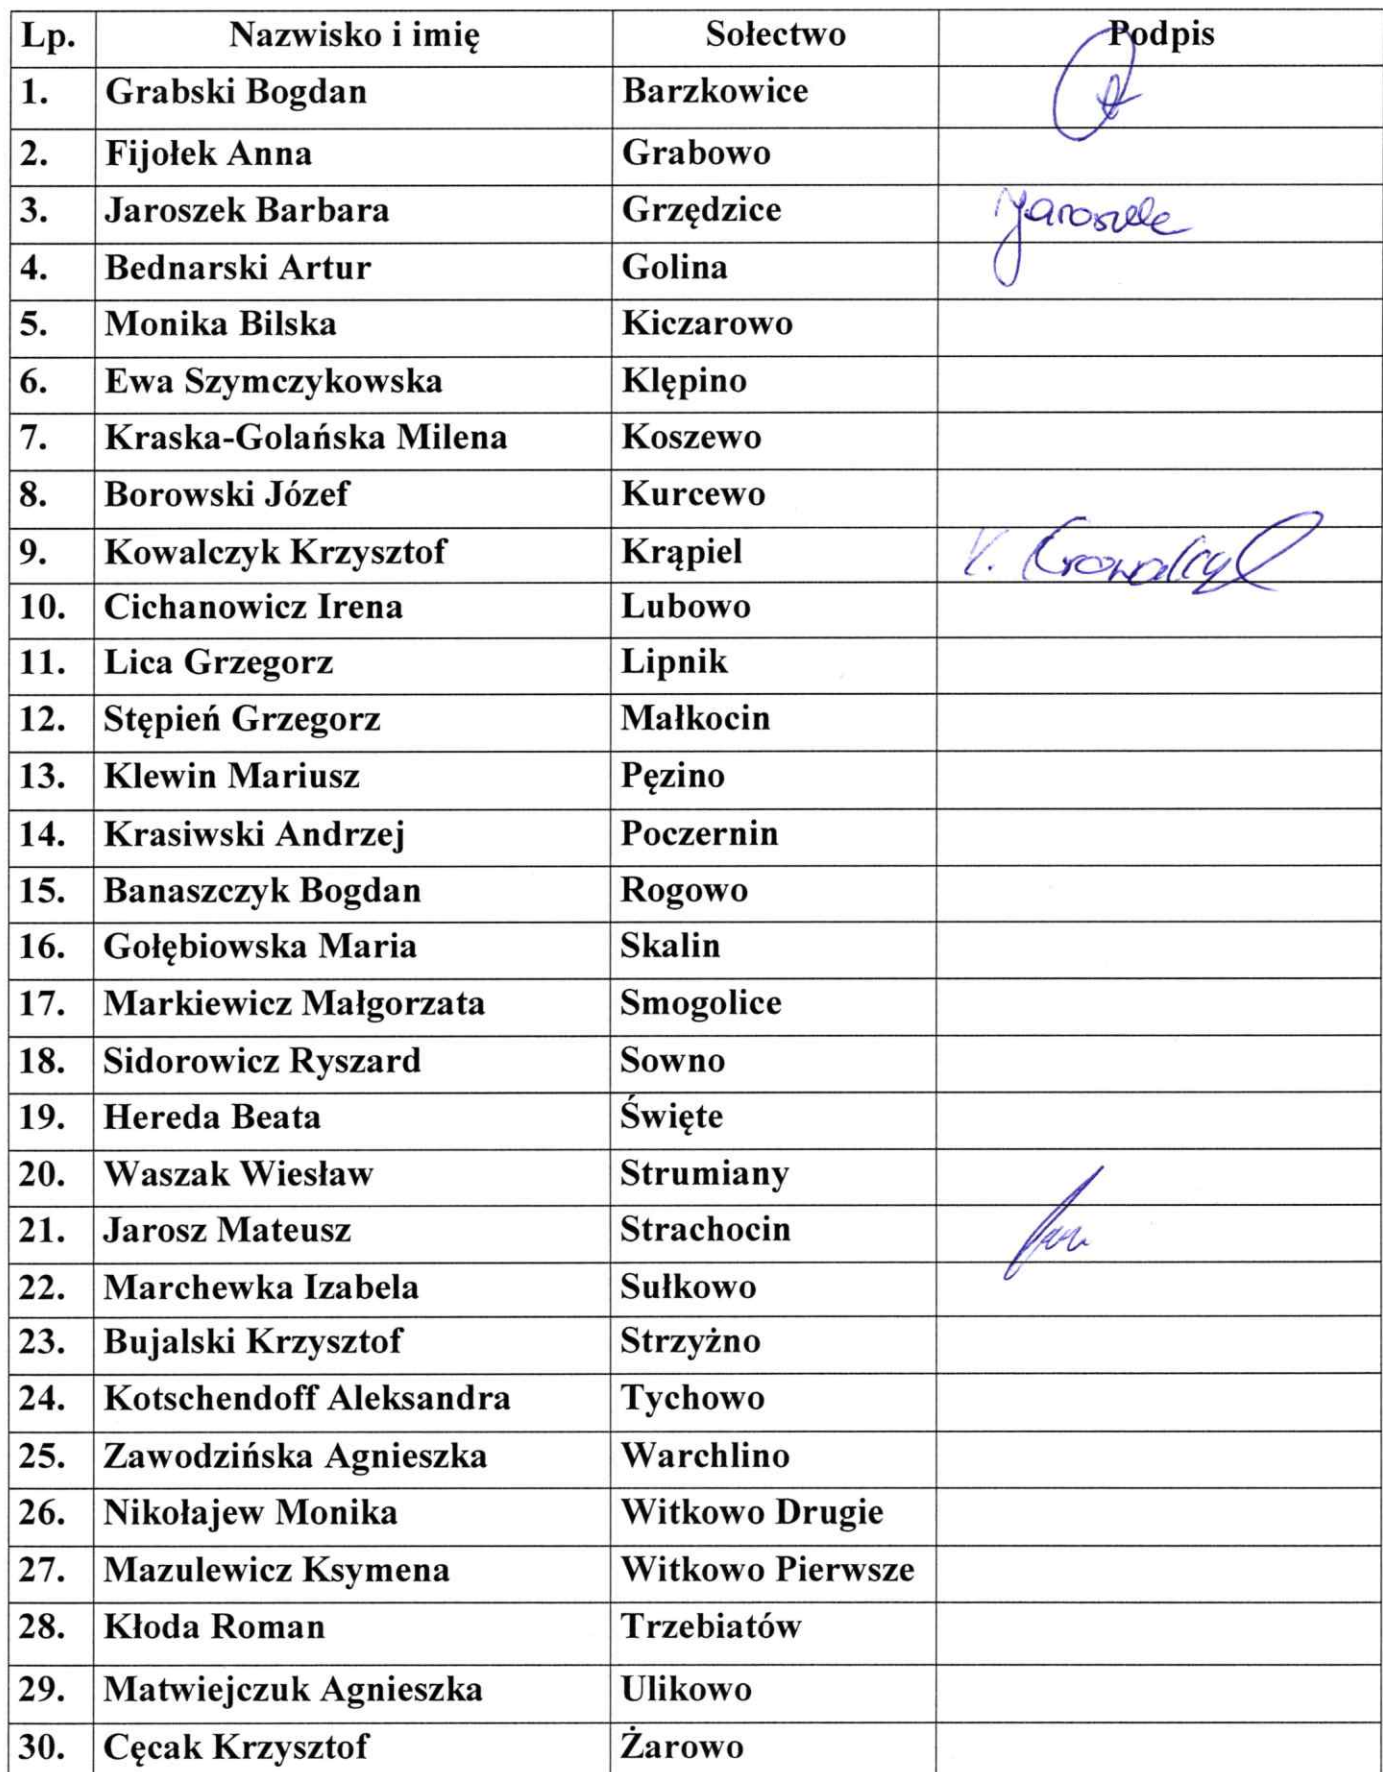 Lp. Nazwisko i imię Sołectwo Podpis
1. Grabski Bogdan Barzkowice
2. Fijołek Anna Grabowo
3. Jaroszek Barbara Grzędzice
4. Bednarski Artur Golina
5. Monika Bilska Kiczarowo
6. Ewa Szymczykowska Klępino
7. Kraska-Golańska Milena Koszewo
8. Borowski Józef Kurcewo
9. Kowalczyk Krzysztof Krąpiel
10. Cichanowicz Irena Lubowo
11. Lica Grzegorz Lipnik
12. Stępień Grzegorz Małkocin
13. Klewin Mariusz Pęzino
14. Krasiwski Andrzej Poczernin
15. Banaszczyk Bogdan Rogowo
16. Gołębiowska Maria Skalin
17. Markiewicz Małgorzata Smogolice
18. Sidorowicz Ryszard Sowno
19. Hereda Beata Święte
20. Waszak Wiesław Strumiany
21. Jarosz Mateusz Strachocin
22. Marchewka Izabela Sułkowo
23. Bujalski Krzysztof Strzyżno
24. Kotschendoff Aleksandra Tychowo
25. Zawodzińska Agnieszka Warchlino
26. Nikołajew Monika Witkowo Drugie
27. Mazulewicz Ksymena Witkowo Pierwsze
28. Kłoda Roman Trzebiatów
29. Matwiejczuk Agnieszka Ulikowo
30. Cęcak Krzysztof Żarowo